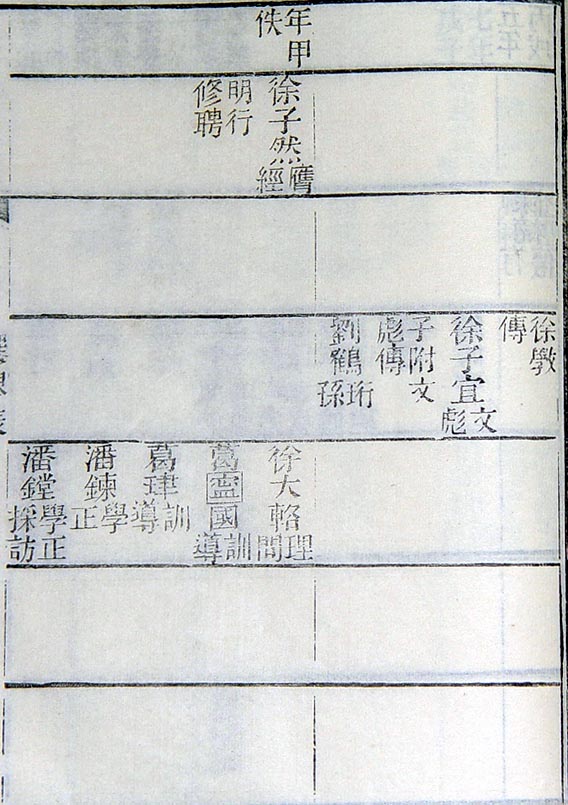 年甲
佚
徐子然膺
經
明行
修聘
徐斆
傳
徐子宜文
彪
子附文
彪傳
劉鶴珩
孫
徐大輅理
問
葛寍國訓
導
葛珒訓
導
潘鍊學
正
潘鏜學正
採訪